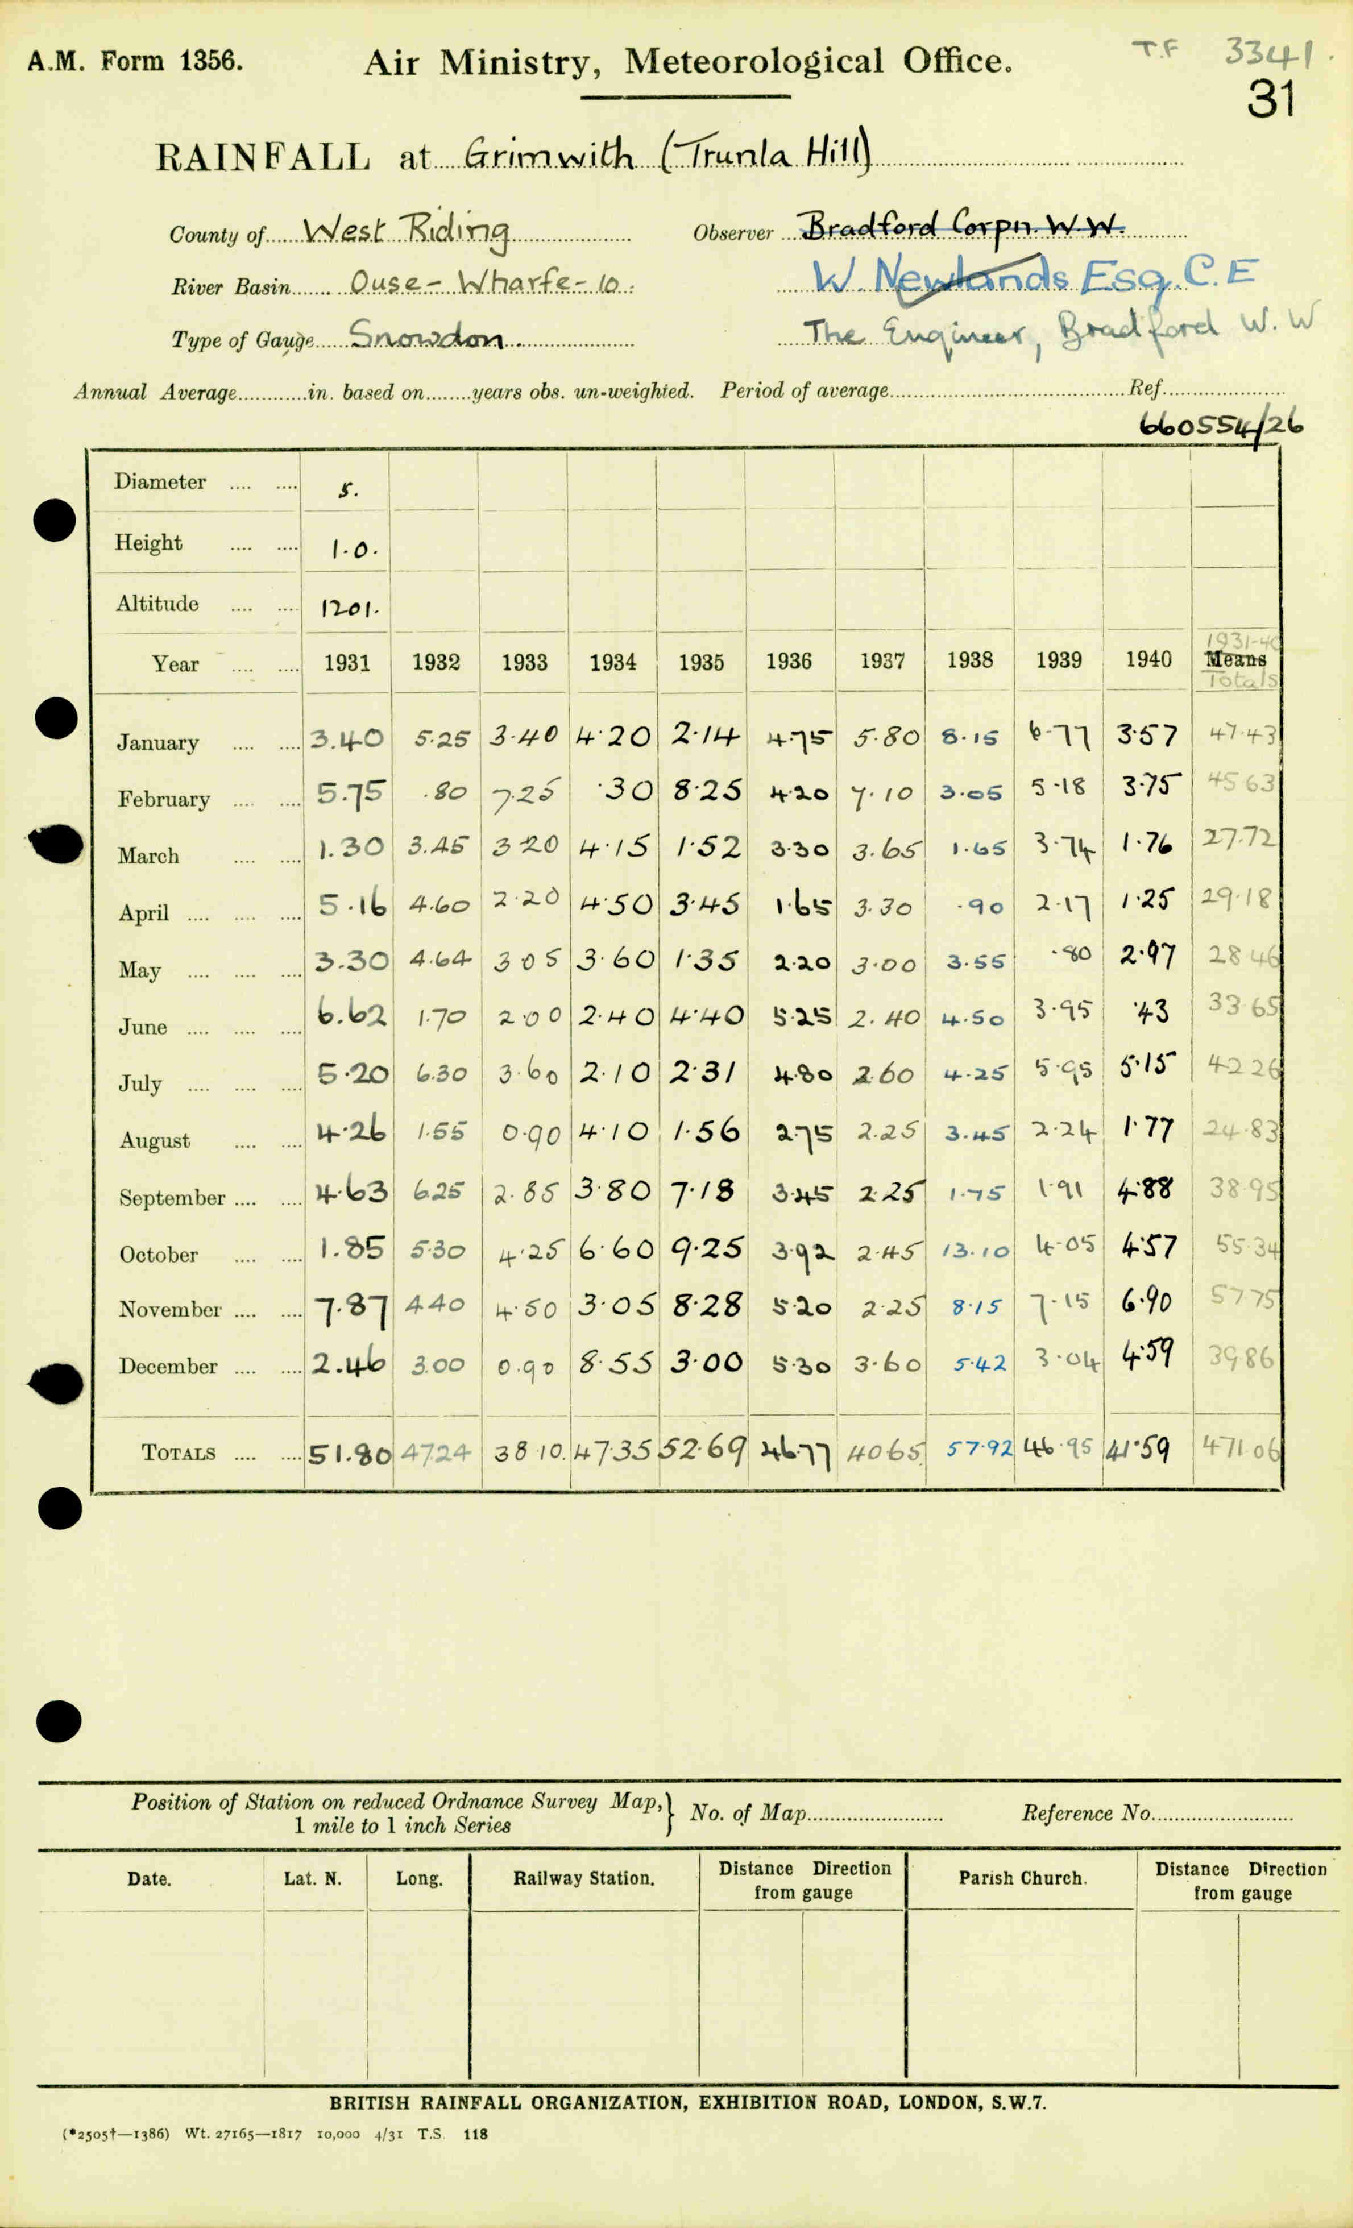 A.M. Form 1356.
Air Ministry, Meteorological Office.
T.F 3341.
31
RAINFALL at Grimwith (Trunla Hill)
County of West Riding Observer Bradford Corpn. W.W.
River Basin Ouse - Wharfe - 10. W. Newlands Esq. C.E
Type of Gauge Snowdon. The Engineer, Bradford W.W
Annual Average............in. based on........years obs. un-weighted. Period of average.............Ref.............
660554/26
Diameter 5.
Height 1.0.
Altitude 1201.
1931-40
Year 1931 1932 1933 1934 1935 1936 1937 1938 1939 1940 Means
Totals
January 3.40 5.25 3.40 4.20 2.14 4.75 5.80 8.15 6.77 3.57 47.43
February 5.75 .80 7.25 .30 8.25 4.20 7.10 3.05 5.18 3.75 45 63
March 1.30 3.45 3 20 4.15 1.52 3.30 3.65 1.65 3.74 1.76 27.72
April 5.16 4.60 2.20 4.50 3.45 1.65 3.30 .90 2.17 1.25 29.18
May 3.30 4.64 3 05 3.60 1.35 2.20 3.00 3.55 .80 2.97 28 46
June 6.62 1.70 2.00 2.40 4.40 5.25 2.40 4.50 3.95 .43 33 65
July 5.20 6.30 3.60 2.10 2.31 4.80 2.60 4.25 5.95 5.15 42 26
August 4.26 1.55 0.90 4.10 1.56 2.75 2.25 3.45 2.24 1.77 24.83
September 4.63 6.25 2.85 3.80 7.18 3.45 2.25 1.75 1.91 4.88 38.95
October 1.85 5.30 4.25 6.60 9.25 3.92 2.45 13.10 4.05 4.57 55.34
November 7.87 4.40 4.50 3.05 8.28 5.20 2.25 8.15 7.15 6.90 57.75
December 2.46 3.00 0.90 8.55 3.00 5.30 3.60 5.42 3.04 4.59 39.86
TOTALS 51.80 47.24 38 10. 47.35 52.69 46.77 40.65 57.92 46.95 41.59 471.06
Position of Station on reduced Ordnance Survey Map, } No. of Map............ Reference No............
1 mile to 1 inch Series
Date. Lat. N. Long. Railway Station. Distance Direction from gauge Parish Church. Distance Direction from gauge
BRITISH RAINFALL ORGANIZATION, EXHIBITION ROAD, LONDON, S.W.7.
(*2505†—1386) Wt. 27165—1817 10,000 4/31 T.S. 118